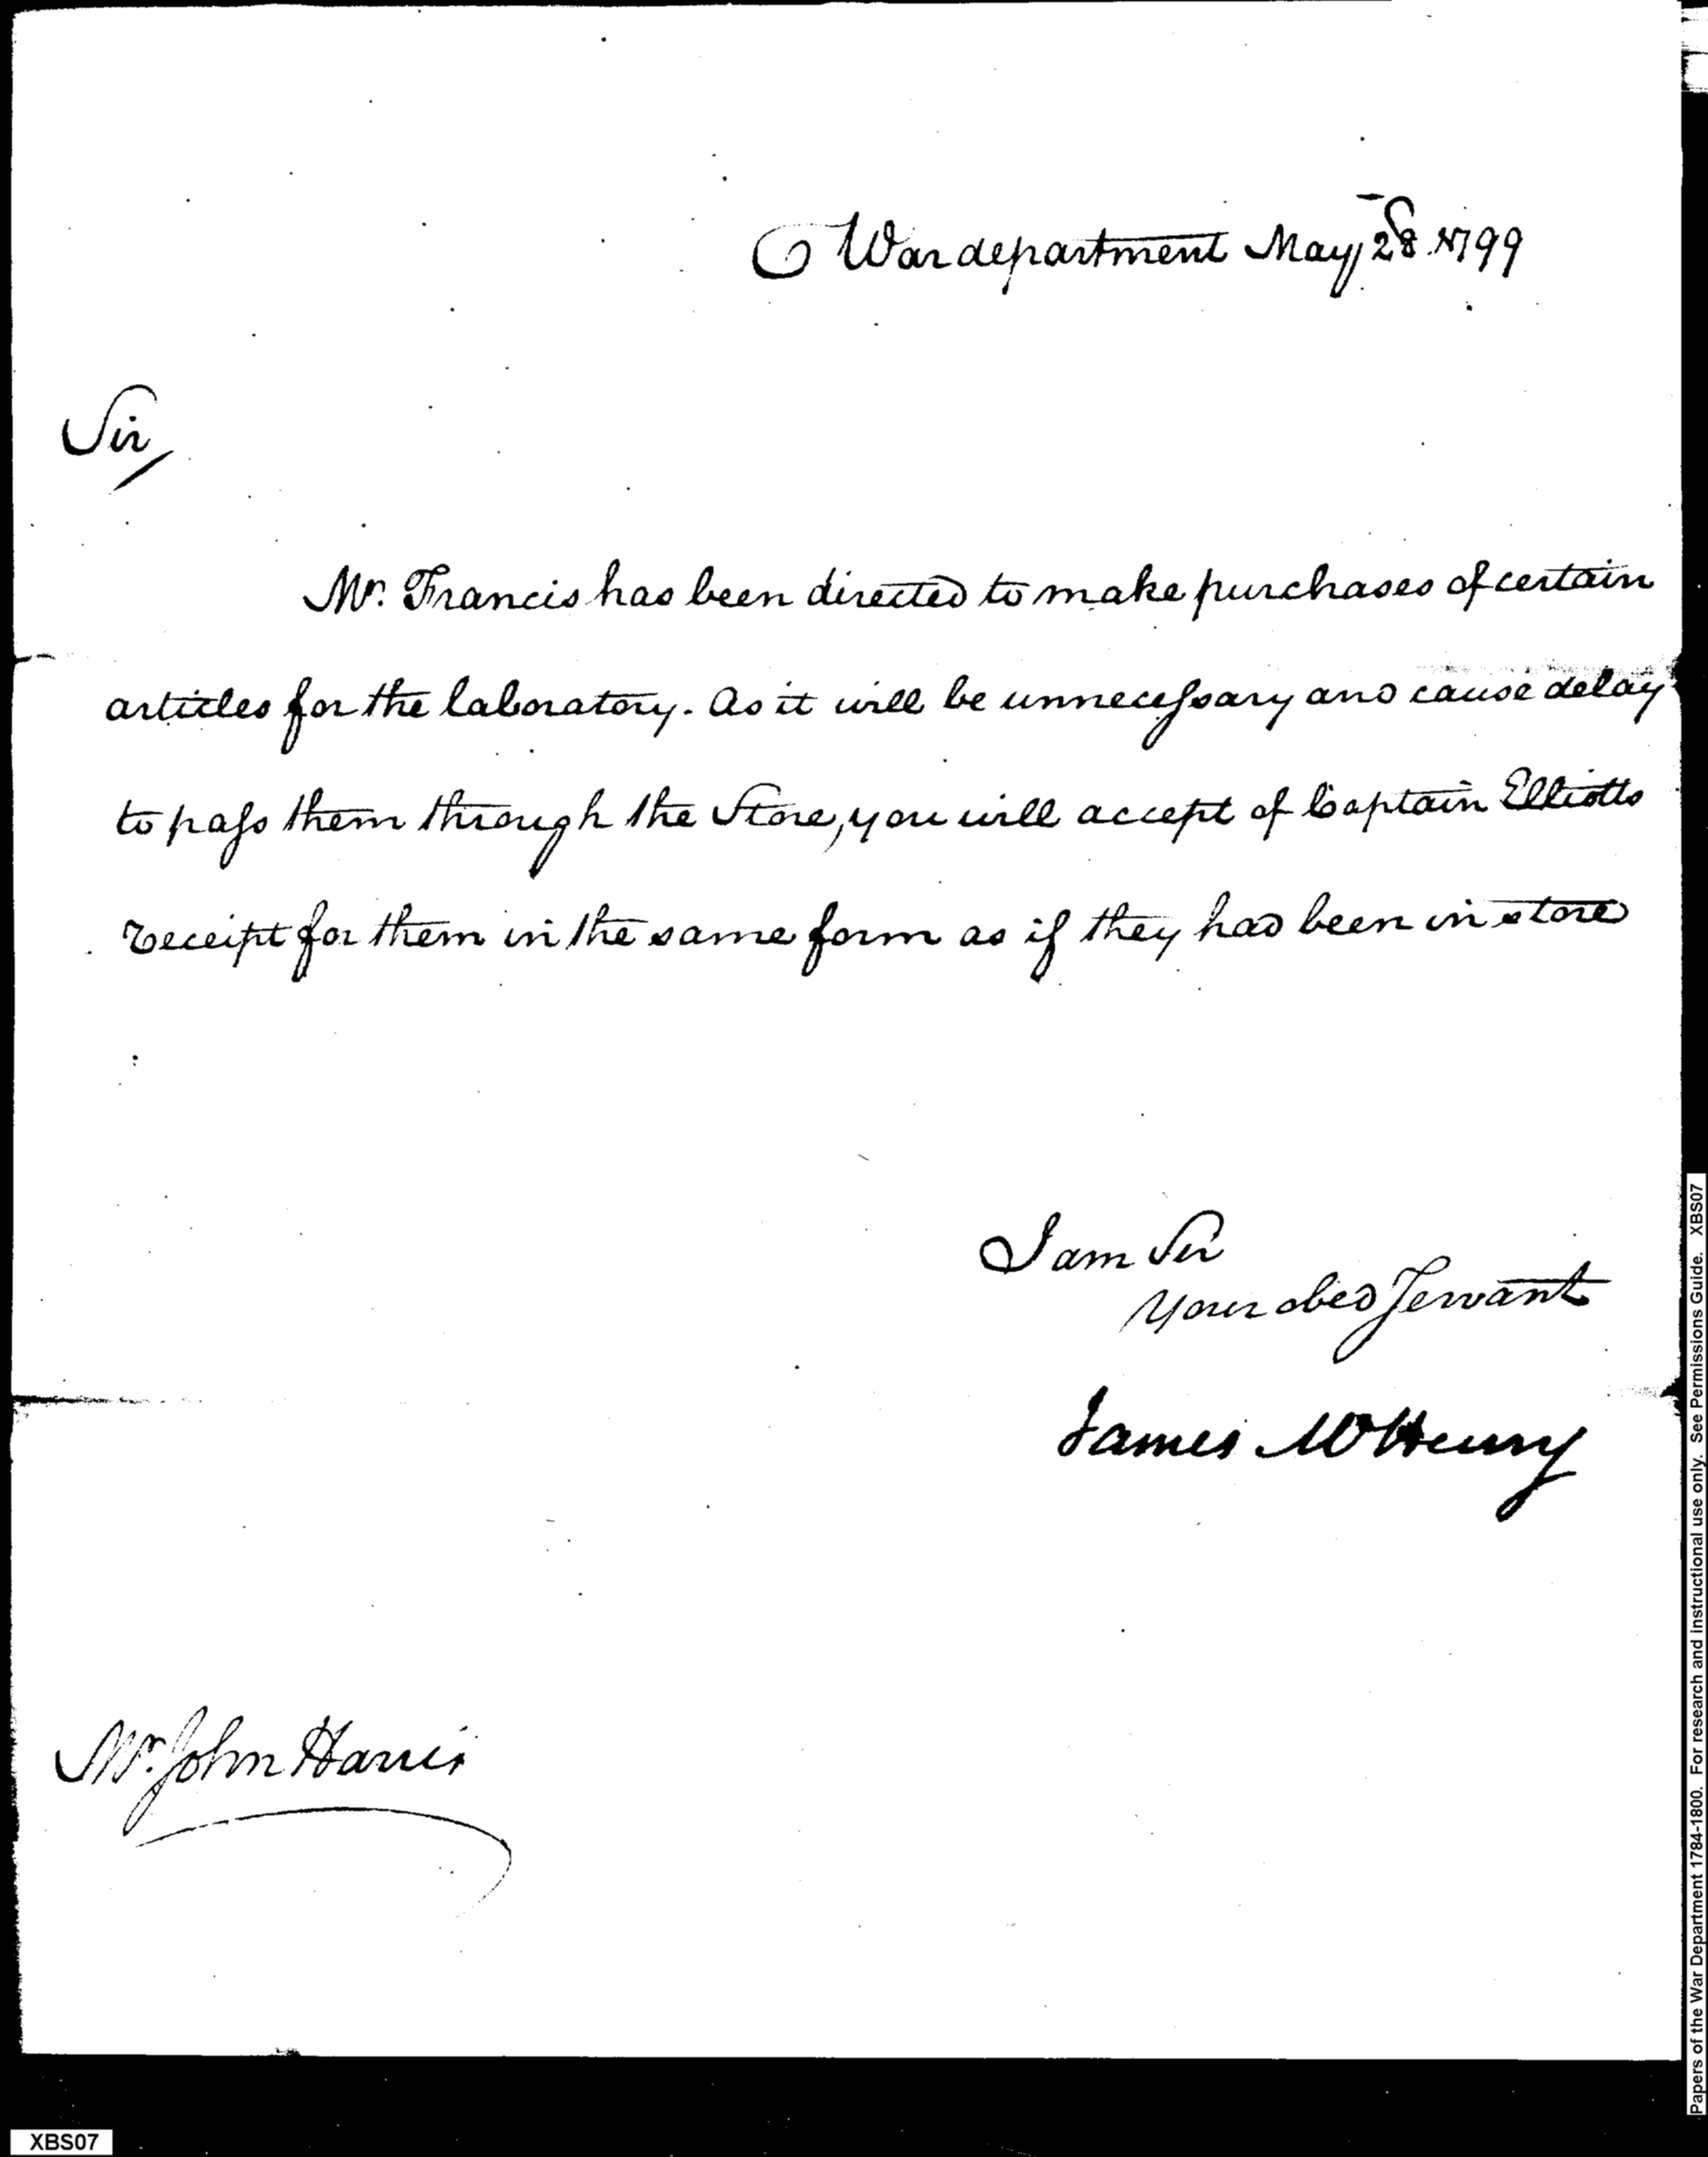 War department May 28 1799
Sir,
Mr. Francis has been directed to make purchases of certain
articles for the laboratory. As it will be unnecessary and cause delay
to pass them through the Store, you will accept of Captain Elliotts
receipt for them in the same form as if they had been in store
I am Sir
Your obed Servant
James McHenry
Mr. John Harris
XBS07
Papers of the War Department 1784-1800. For research and instructional use only. See Permissions Guide. XBS07